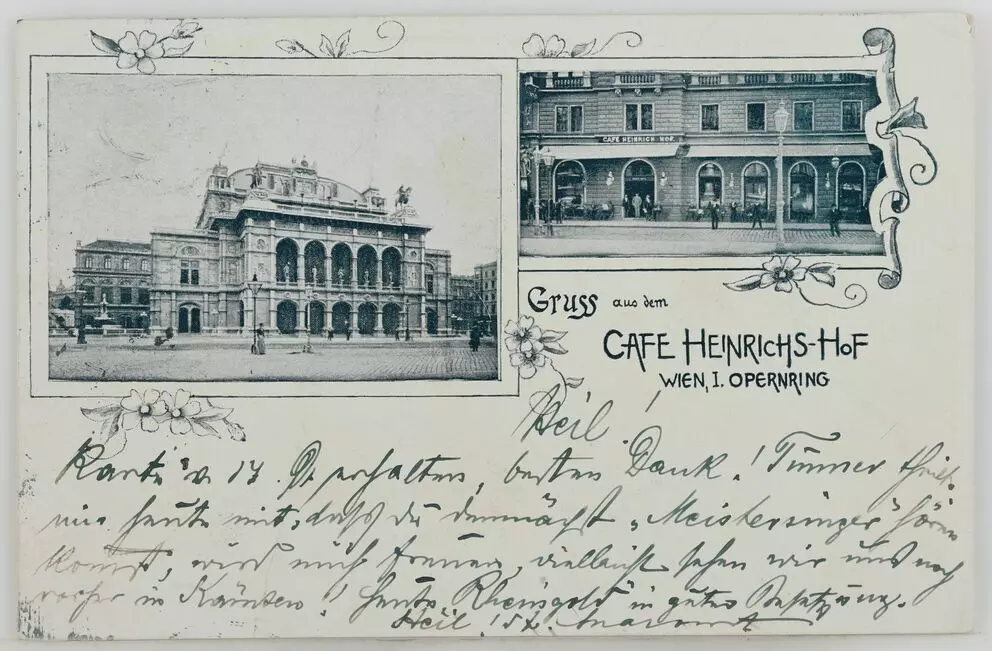 CAFE HEINRICH HOF
Gruss aus dem
CAFE HEINRICHS-HOF
WIEN, I. OPERNRING
Heil!
Karte v 17. erhalten, besten Dank! Timmer theilt
mir heute mit, daß du demnächst „Meistersinger" hören
kommst, wird mich freuen, vielleicht sehen wir uns noch
vorher in Kärnten! Heute Rheingold in guter Besetzung.
Heil!